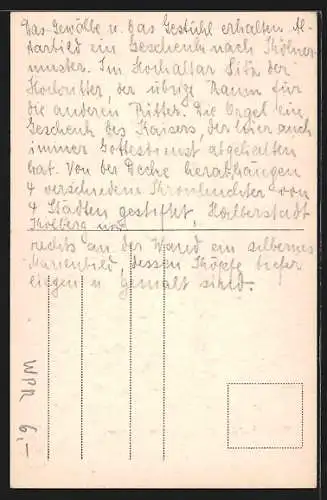 Das Gewölbe u. das Gestühl erhalten Al-
tarbild ein Geschenk nach Kölner
muster. Im Hochaltar Sitz der
der übrige Raum für
die anderen Ritter. Die Orgel ein
Geschenk des Kaisers, der hier auch
immer Gottestienst abgehalten
hat. Von der Decke herabhängen
4 verschiedene Kronleuchter von
4 Städten gestiftet, Halberstadt
Kolberg und
rechts an der Wand ein silbernes
Marienbild, dessen Köpfe tiefer
liegen u gemalt sind.
WPR 6,-